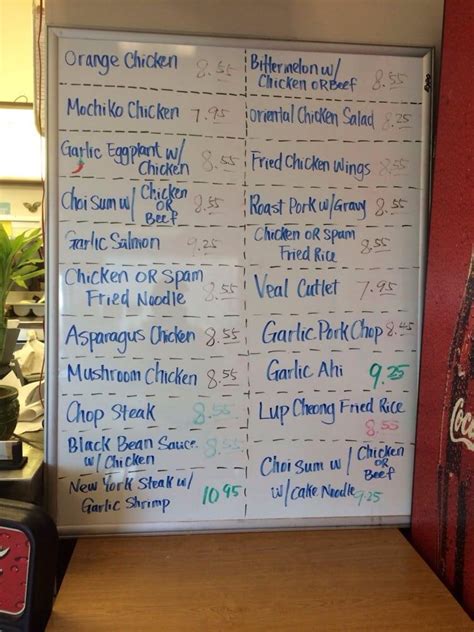 Orange Chicken 8.55
Mochiko Chicken 7.95
Garlic Eggplant w/ 8.55
Chicken
Choi Sum w/ Chicken 8.55
OR
Beef
Garlic Salmon 9.25
Chicken OR Spam
Fried Noodle 8.55
Asparagus Chicken 8.55
Mushroom Chicken 8.55
Chop Steak 8.55
Black Bean Sauce 8.55
w/ Chicken
New York Steak w/ 10.95
Garlic Shrimp
Bittermelon w/
Chicken OR Beef 8.55
Oriental Chicken Salad 8.25
Fried Chicken Wings 8.55
Roast Pork w/Gravy 8.55
Chicken OR Spam
Fried Rice 8.55
Veal Cutlet 7.95
Garlic Pork Chop 8.45
Garlic Ahi 9.25
Lup Cheong Fried Rice
8.55
Choi Sum w/ Chicken
OR
Beef
w/cake Noodle 9.25